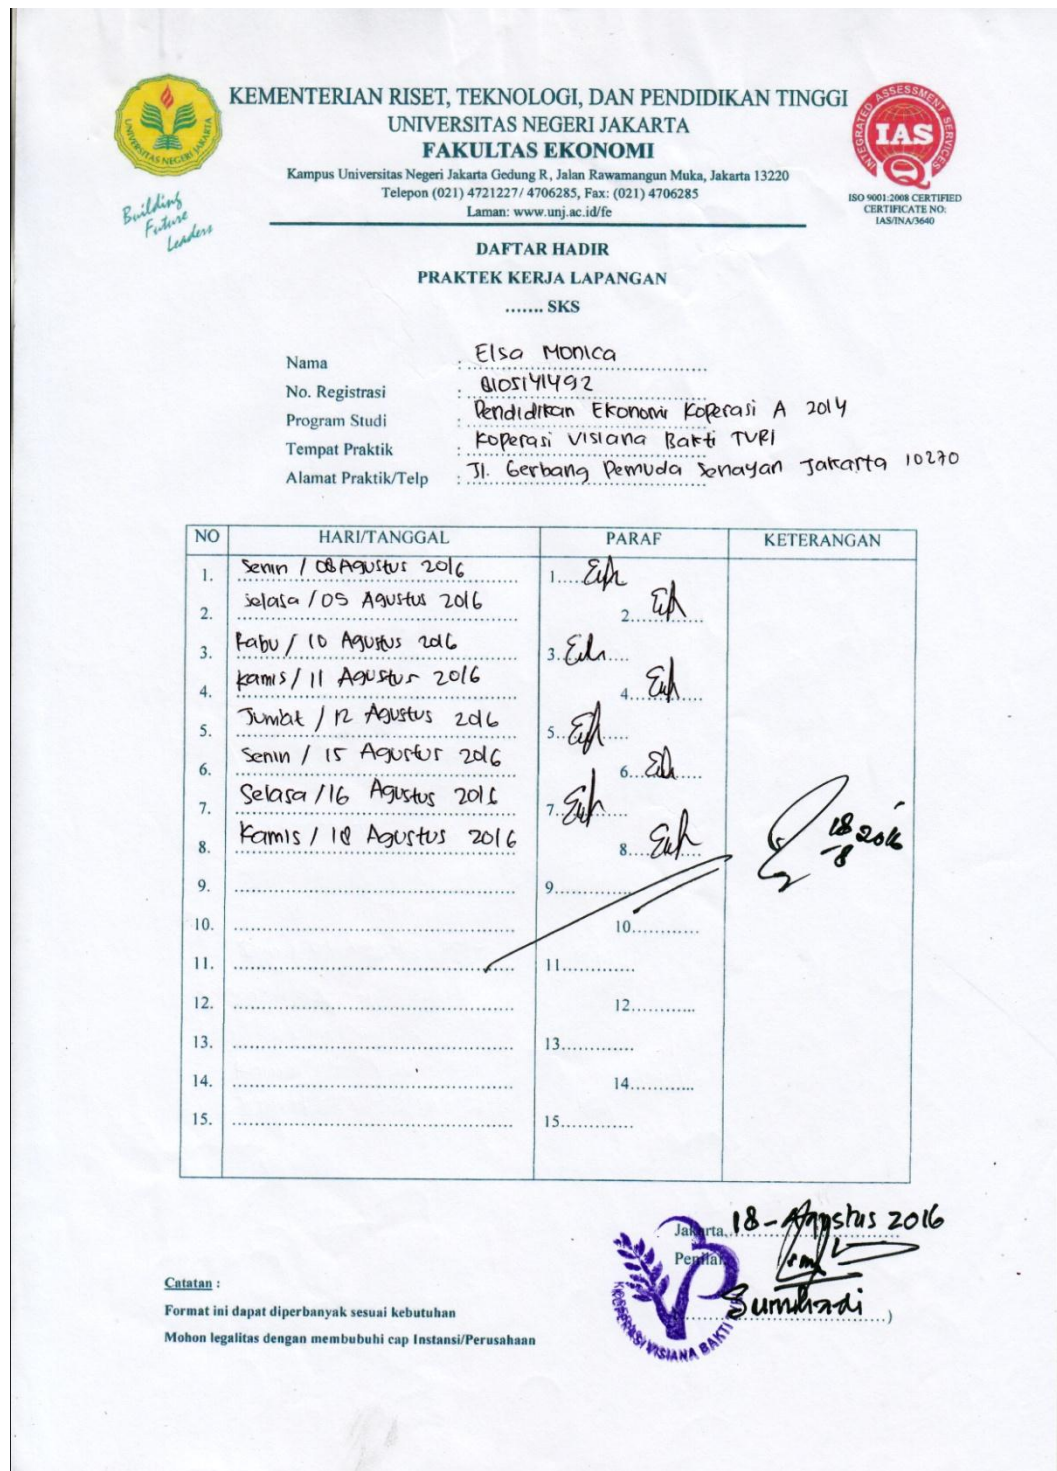 KEMENTERIAN RISET, TEKNOLOGI, DAN PENDIDIKAN TINGGI
UNIVERSITAS NEGERI JAKARTA
FAKULTAS EKONOMI
Kampus Universitas Negeri Jakarta Gedung R, Jalan Rawamangun Muka, Jakarta 13220
Telepon (021) 4721227/ 4706285, Fax: (021) 4706285
Laman: www.unj.ac.id/fe
UNIVERSITAS NEGERI JAKARTA
Building
Future
Leaders
INTEGRATED ASSESSMENT SERVICES
IAS
Q
ISO 9001:2008 CERTIFIED
CERTIFICATE NO:
IAS/INA/3640
DAFTAR HADIR
PRAKTEK KERJA LAPANGAN
....... SKS
Nama : Elsa Monica
No. Registrasi : 8105141492
Program Studi : Pendidikan Ekonomi Koperasi A 2014
Tempat Praktik : Koperasi Visiana Bakti TVRI
Alamat Praktik/Telp : Jl. Gerbang Pemuda Senayan Jakarta 10270
NO HARI/TANGGAL PARAF KETERANGAN
1. Senin / 08 Agustus 2016 1.
2. Selasa / 09 Agustus 2016 2.
3. Rabu / 10 Agustus 2016 3.
4. Kamis / 11 Agustus 2016 4.
5. Jumat / 12 Agustus 2016 5.
6. Senin / 15 Agustus 2016 6.
7. Selasa / 16 Agustus 2016 7.
8. Kamis / 18 Agustus 2016 8. 18/8 2016
9. 9.
10. 10.
11. 11.
12. 12.
13. 13.
14. 14.
15. 15.
Jakarta, 18 - Agustus 2016
Penilai
Sumihadi )
KOPERASI VISIANA BAKTI
Catatan :
Format ini dapat diperbanyak sesuai kebutuhan
Mohon legalitas dengan membubuhi cap Instansi/Perusahaan